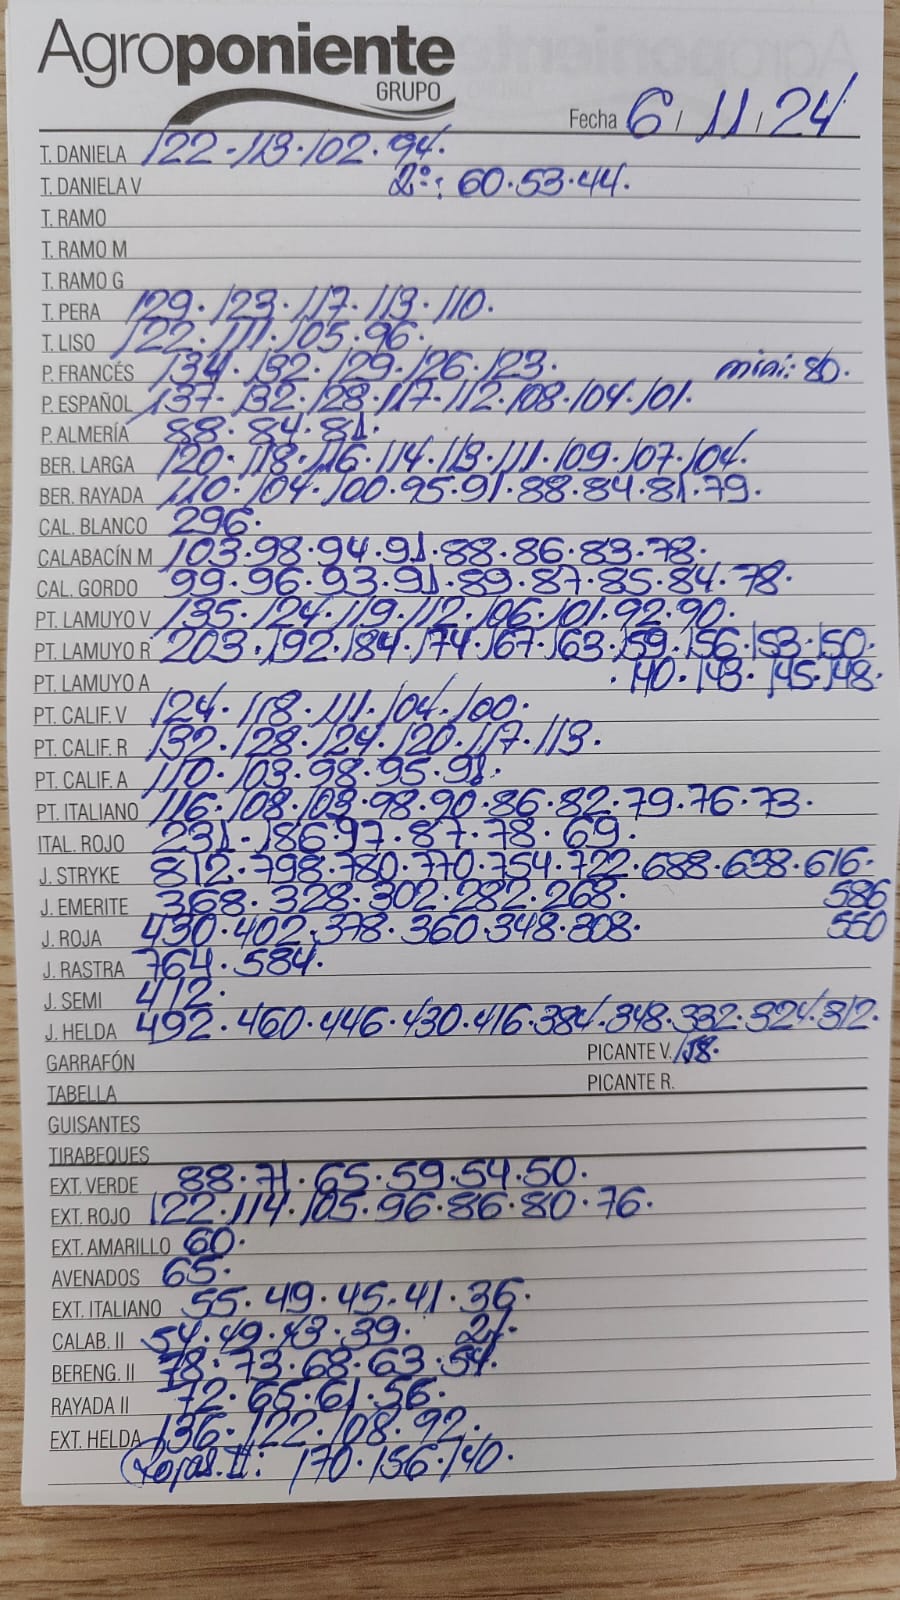 Agroponiente
GRUPO
Fecha 6/11/24
T. DANELA 122·113·102·94.
T. DANIELA V 2º: 60·53·44.
T. RAMO
T. RAMO M
T. RAMO G
T. PERA 129·123·117·113·110.
T. LISO 122·111·105·96.
P. FRANCÉS 134·132·129·126·123. mini: 80.
P. ESPAÑOL 137·132·128·117·112·108·104·101.
P. ALMERÍA 88·84·81.
BER. LARGA 120·118·116·114·113·111·109·107·104.
BER. RAYADA 110·104·100·95·91·88·84·81·79.
CAL. BLANCO 296.
CALABACÍN M 103·98·94·91·88·86·83·78.
CAL. GORDO 99·96·93·91·89·87·85·84·78.
PT. LAMUYO V 135·124·119·112·106·101·92·90.
PT. LAMUYO R 203·192·184·174·167·163·159·156·153·150.
PT. LAMUYO A ·140·143·145·148.
PT. CALIF. V 124·118·111·104·100.
PT. CALIF. R 132·128·124·120·117·113.
PT. CALIF. A 110·103·98·95·91.
PT. ITALIANO 116·108·103·98·90·86·82·79·76·73.
ITAL. ROJO 231·186·97·87·78·69.
J. STRYKE 812·798·780·770·754·722·688·638·616.
J. EMERITE 368·328·302·282·268. 586
J. ROJA 430·402·378·360·348·308. 550
J. RASTRA 764·584.
J. SEMI 412.
J. HELDA 492·460·446·430·416·384·348·332·324·312.
GARRAFÓN PICANTE V. 158.
TABELLA PICANTE R.
GUISANTES
TIRABEQUES
EXT. VERDE 88·71·65·59·54·50.
EXT. ROJO 122·114·105·96·86·80·76.
EXT. AMARILLO 60.
AVENADOS 65.
EXT. ITALIANO 55·49·45·41·36.
CALAB. II 54·49·43·39. 21.
BERENG. II 78·73·68·63·54.
RAYADA II 72·65·61·56.
EXT. HELDA 136·122·108·92.
Rojas. II: 170·156·140.